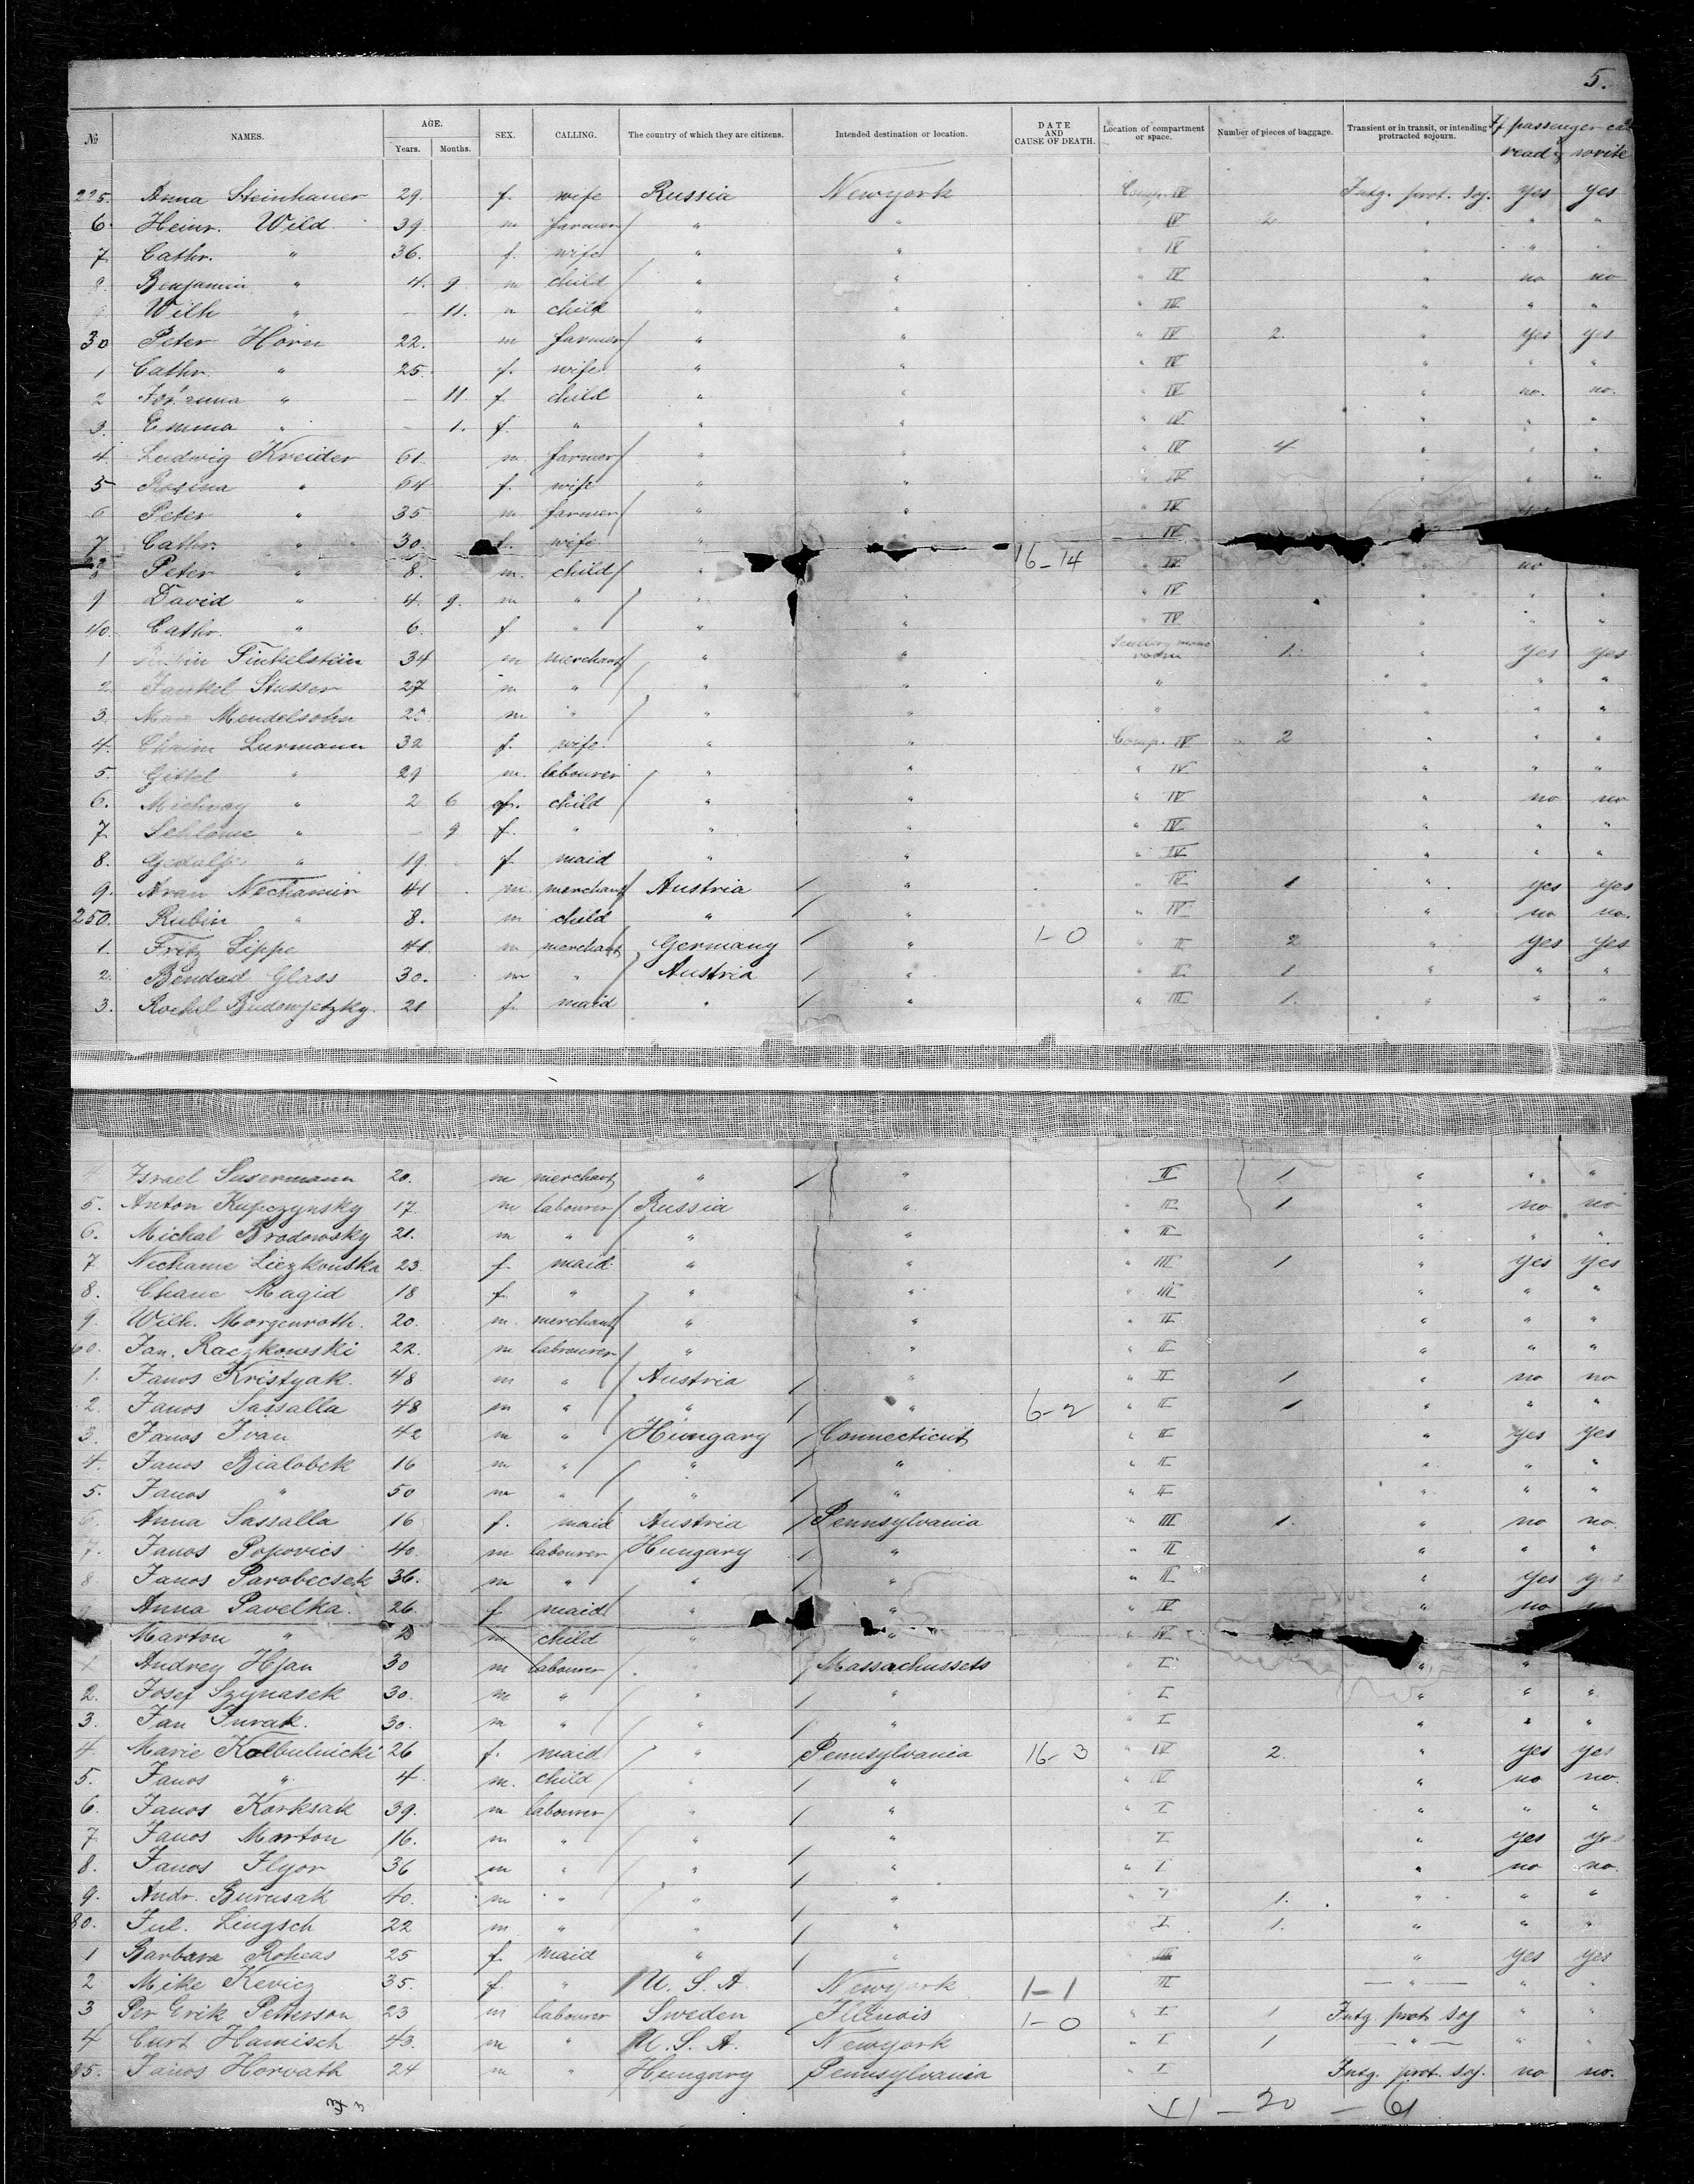 5.
№ NAMES. AGE. Years. Months. SEX. CALLING. The country of which they are citizens. Intended destination or location. DATE AND CAUSE OF DEATH. Location of compartment or space. Number of pieces of baggage. Transient or in transit, or intending protracted sojourn. If passenger can read & write
225. Anna Steinhauer 29. f. wife Russia Newyork Comp. IV Intg. prot. soj. yes yes
6. Heinr. Wild 39. m farmer " " " IV 2 " " "
7. Cathr. " 36. f. wife " " " IV " " "
8. Benjamin " 4. 9 m child " " " IV " no no
9 Wilh " — 11. m child " " " IV " " "
30 Peter Horn 22. m farmer " " " IV 2. " yes yes
1 Cathr. " 25. f. wife " " " IV " " "
2 Johanna " — 11. f child " " " IV " no. no.
3. Emma " — 1. f. " " " " IV " " "
4. Ludwig Kreider 61. m. farmer " " " IV 4 " " "
5 Rosina " 64 f. wife " " " IV " " "
6 Peter " 35 m farmer " " " IV
7. Cathr. " 30. f. wife " IV
8 Peter " 8. m. child " 16-14 " IV no
9 David " 4. 9. m " " " IV " " "
40. Cathr. " 6. f " " " IV " " "
1 Finkelstein 34 m merchant " " 1. " yes yes
2. Jankel Stusser 27 m " " " " " " "
3. Max Mendelsohn m " " " " " " "
4. Chaim Lurmann 32 f. wife. " " Comp. IV 2 " " "
5. Gittel " 29 m. labourer " " " IV " " "
6. " 2 6 f. child " " " IV " no no
7 Schlome " — 9 f. " " " " IV " " "
8. " 19. f maid " " " IV " " "
9. Aran Nechamin 41 m merchant Austria " " IV 1 " yes yes
250. Rubin " 8. m child " " IV " no no.
1. Fritz Lippe 41. m merchant Germany " 1-0 " II 2 " yes yes
2. Glass 30. m " Austria " " II 1 " " "
3. Rochel Budowjetzky. 21 f. maid " " " III 1. " " "
4 Israel Susermann 20. m merchant " " II 1 " " "
5. Anton Kupczynsky 17. m labourer Russia " " II 1 " no no
6. Michal Brodowsky 21. m " " " " II " " "
7 Nechame Liezkouska 23. f. maid. " " " III 1 " yes yes
8. Chane Magid 18 f. " " " " III " " "
9. Wilh. Morgenroth. 20. m. merchant " " " II " " "
60. Jan. Raczkowski 22. m labourer " " " II " " "
1. Janos Kristyak. 48 m " Austria " " II 1 " no no
2. Janos Sassalla 48 m " " " 6-2 " II 1 " " "
3. Janos Ivan 42 m " Hungary Connecticut " II " yes yes
4. Janos Bialobek 16 m " " " " II " " "
5. Janos " 50 m " " " " II " " "
6. Anna Sassalla 16 f. maid Austria Pennsylvania " III 1. " no no.
7. Janos Popovics 40. m labourer Hungary " " II " " "
8 Janos Parobecsek 36. m " " " " II " yes yes
Anna Pavelka. 26. f maid " " " IV " no
Marton " m child " " " IV
1 Andrey Hjan 30 m labourer Massachussets " I " "
2. Josef Szynasek 30. m " " " " I " " "
3. Jan Turak. 30. m " " " " I " " "
4. Marie Kolbulnicki 26 f. maid " Pennsylvania 16-3 " IV 2. " yes yes
5. Janos " 4. m. child " " " IV " no no.
6. Janos Korksak 39. m labourer " " " I " " "
7 Janos Marton 16. m " " " " I " yes yes
8. Janos Ilyor 36 m " " " " I " no no.
9. Andr. Burusak 40. m " " " " I 1. " " "
80. Jul. Lingsch 22 m " " " " I 1. " " "
1 Barbara Roheas 25 f. maid " " III " yes yes
2 Mike Kevicz 35. f. " U. S. A. Newyork 1-1 III — " — " "
3 Per Erik Petterson 23 m labourer Sweden Illenois 1-0 " I 1 Intg. prot. soj " "
4 Curt Hamisch 43. m " U. S. A. Newyork " I 1 — " — " "
85. Janos Horvath 24 m " Hungary Pennsylvania " I Intg. prot. soj. no no.